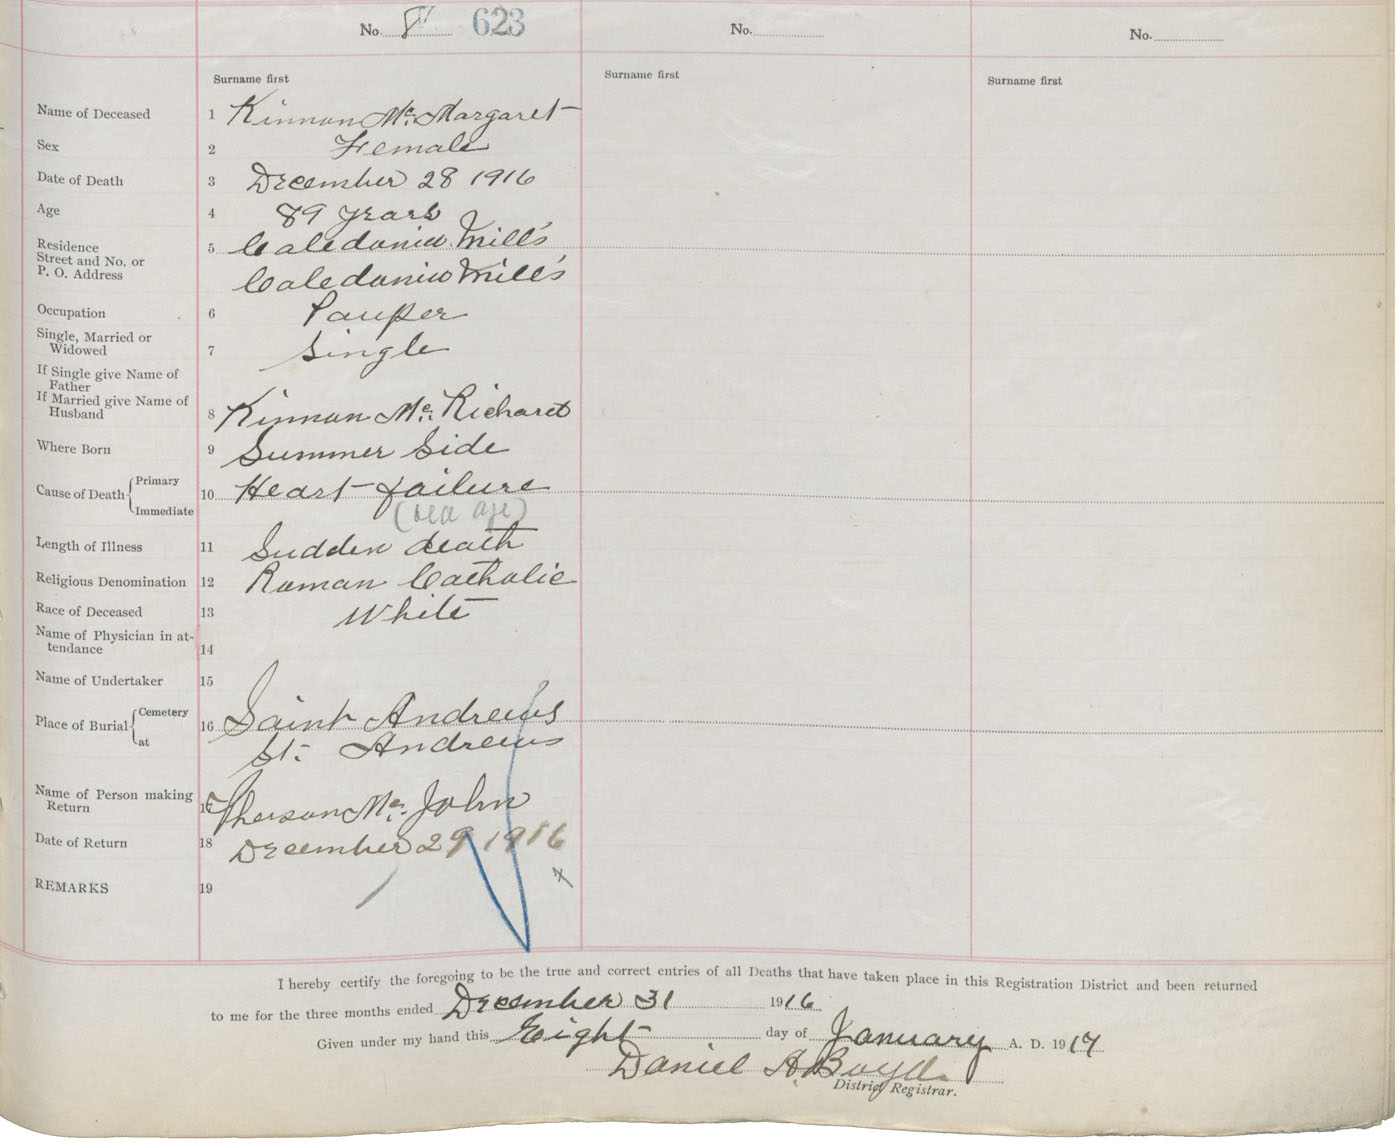 No. 8 623 No. No.
Surname first Surname first Surname first
Name of Deceased 1 Kinnon Mc. Margaret
Sex 2 Female
Date of Death 3 December 28 1916
Age 4 89 years
Residence 5 Caledonia Mill's
Street and No. or
P. O. Address Caledonia Mill's
Occupation 6 Pauper
Single, Married or
Widowed 7 Single
If Single give Name of
Father
If Married give Name of
Husband 8 Kinnon Mc. Richard
Where Born 9 Summer Side
Cause of Death { Primary
Immediate 10 Heart failure
(old age)
Length of Illness 11 Sudden death
Religious Denomination 12 Roman Catholic
Race of Deceased 13 White
Name of Physician in at-
tendance 14
Name of Undertaker 15
Place of Burial { Cemetery 16 Saint Andrews
at St. Andrews
Name of Person making
Return 17 Pherson Mc. John
Date of Return 18 December 29 1916
REMARKS 19
I hereby certify the foregoing to be the true and correct entries of all Deaths that have taken place in this Registration District and been returned
to me for the three months ended December 31 1916
Given under my hand this Eight day of January A. D. 1917
Daniel A. Boyd
District Registrar.